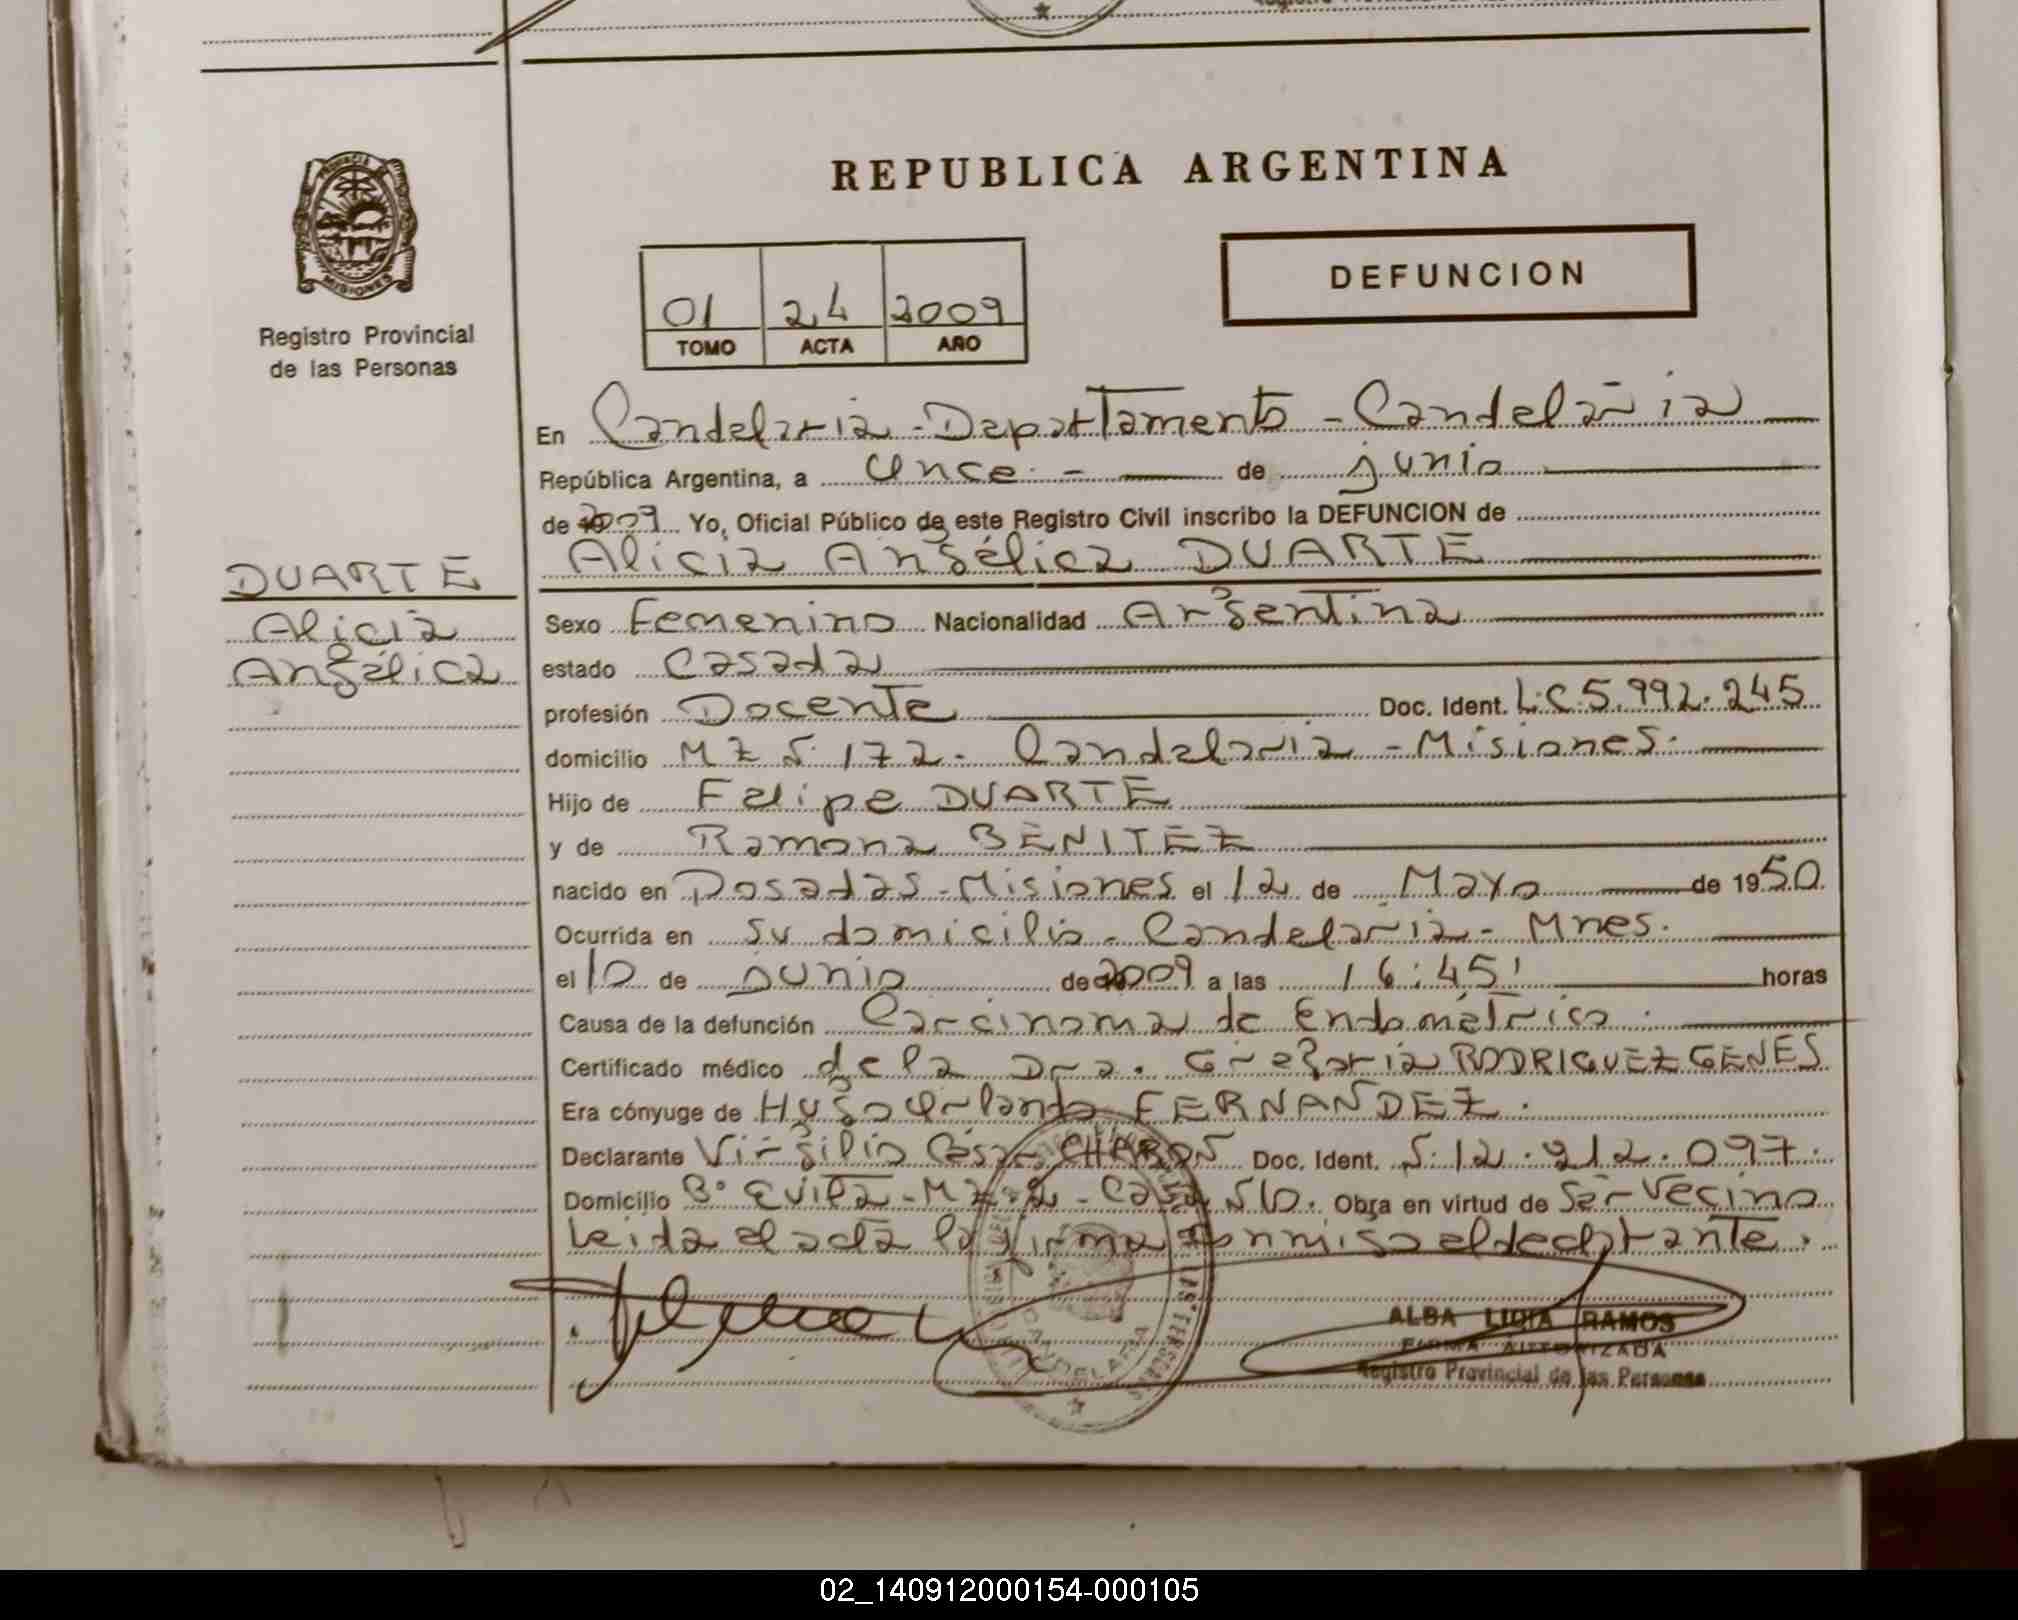 REPUBLICA ARGENTINA
PROVINCIA
MISIONES
Registro Provincial
de las Personas
DEFUNCION
01 24 2009
TOMO ACTA AÑO
En Candelaria - Departamento - Candelaria
República Argentina, a Once - de junio
de 2009 Yo, Oficial Público de este Registro Civil inscribo la DEFUNCION de
Alicia Angélica DUARTE
DUARTE
Alicia
Angélica
Sexo Femenino Nacionalidad Argentina
estado Casada
profesión Docente Doc. Ident. L.C 5.992.245
domicilio MZ 5 172 - Candelaria - Misiones.
Hijo de Felipe DUARTE
y de Ramona BENITEZ
nacido en Posadas - Misiones el 12 de Mayo de 1950
Ocurrida en su domicilio - Candelaria - Mnes.
el 10 de junio de 2009 a las 16:45' horas
Causa de la defunción Carcinoma de Endométrico.
Certificado médico de la Dra. Gregoria RODRIGUEZ GENES
Era cónyuge de Hugo Orlando FERNANDEZ.
Declarante Virgilio César Doc. Ident. 12.212.097.
Domicilio B° Evita - MZ. 2 - Casa Obra en virtud de Ser Vecino
Leida el acta la firma conmigo el declarante.
CANDELARIA
ALBA LIDIA RAMOS
FIRMA AUTORIZADA
Registro Provincial de las Personas
02_140912000154-000105